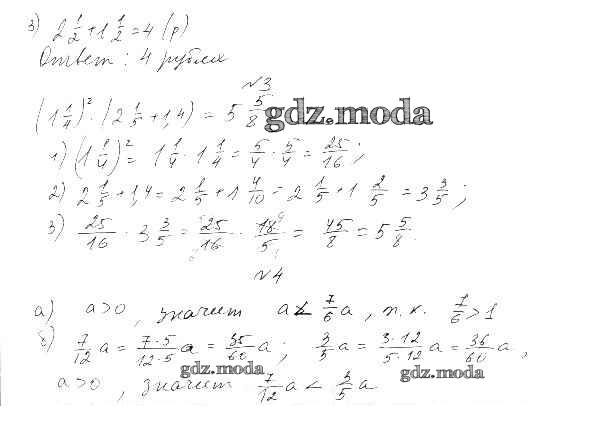 3) 2 1/2 + 1 1/2 = 4 (р)
Ответ: 4 рублей
№3
(1 1/4)² · (2 1/5 + 1,4) = 5 5/8
gdz.moda
1) (1 1/4)² = 1 1/4 · 1 1/4 = 5/4 · 5/4 = 25/16;
2) 2 1/5 + 1,4 = 2 1/5 + 1 4/10 = 2 1/5 + 1 2/5 = 3 3/5;
3) 25/16 · 3 3/5 = 25/16 · 18/5 = 45/8 = 5 5/8.
№4
а) a>0, значит a < 7/6 a, т.к. 7/6 > 1
б) 7/12 a = 7·5/12·5 a = 35/60 a; 3/5 a = 3·12/5·12 a = 36/60 a,
gdz.moda
gdz.moda
a>0, значит 7/12 a < 3/5 a